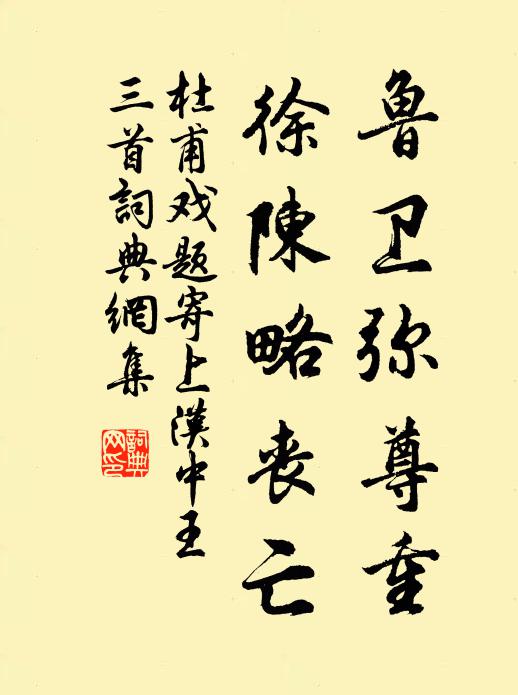 鲁卫弥尊重
徐陳略丧亡
杜甫戏题寄上漢中王
三首詞典網集
詞典
网印